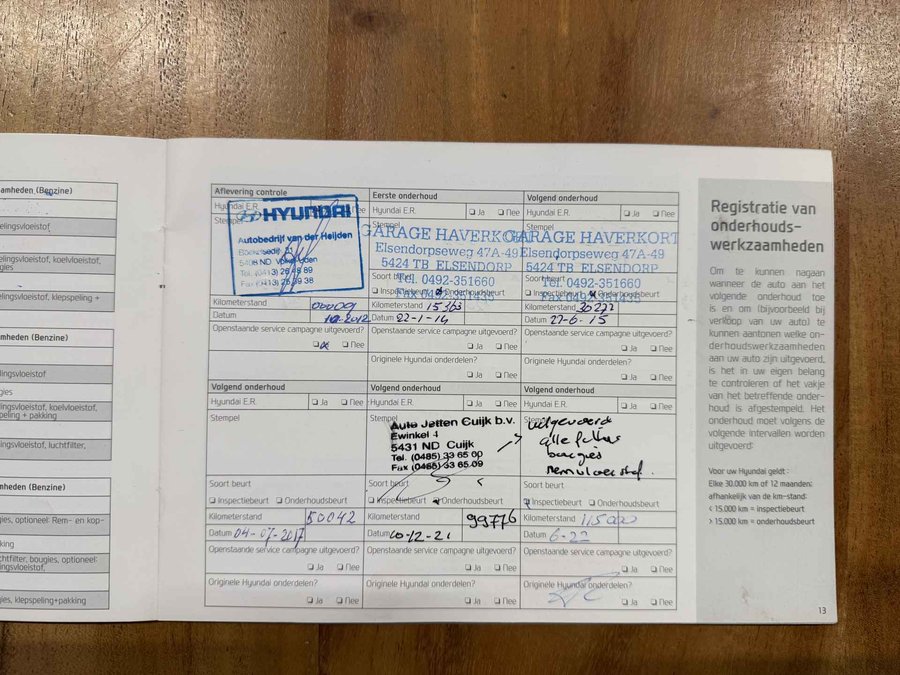 amheden (Benzine)
elingsvloeistof
elingsvloeistof, koelvloeistof,
gies
elingsvloeistof, klepspeling +
amheden (Benzine)
elingsvloeistof
gies
elingsvloeistof, koelvloeistof,
peling + pakking
elingsvloeistof, luchtfilter,
amheden (Benzine)
gies, optioneel: Rem- en kop-
king
chtfilter, bougies, optioneel:
lingsvloeistof,
gies, klepspeling+pakking
Aflevering controle
Hyundai E.R. Nee
Stempel
HYUNDAI
Autobedrijf van der Heijden
Kilometerstand 000001
Datum 2012
Openstaande service campagne uitgevoerd?
Ja Nee
Eerste onderhoud
Hyundai E.R. Ja Nee
Stempel
GARAGE HAVERKORT
Elsendorpseweg 47A-49
5424 TB ELSENDORP
Tel. 0492-351660
Soort beurt
Inspectiebeurt Onderhoudsbeurt
Fax 0492-351435
Kilometerstand 15363
Datum 22-1-14
Openstaande service campagne uitgevoerd?
Ja Nee
Originele Hyundai onderdelen?
Ja Nee
Volgend onderhoud
Hyundai E.R. Ja Nee
Stempel
GARAGE HAVERKORT
Elsendorpseweg 47A-49
5424 TB ELSENDORP
Tel. 0492-351660
Soort beurt
Inspectiebeurt Onderhoudsbeurt
Fax 0492-351435
Kilometerstand
Datum 27-6-15
Openstaande service campagne uitgevoerd?
Ja Nee
Originele Hyundai onderdelen?
Ja Nee
Volgend onderhoud
Hyundai E.R. Ja Nee
Stempel
Soort beurt
Inspectiebeurt Onderhoudsbeurt
Kilometerstand 50042
Datum 04-07-2017
Openstaande service campagne uitgevoerd?
Ja Nee
Originele Hyundai onderdelen?
Ja Nee
Volgend onderhoud
Hyundai E.R. Ja Nee
Stempel
Auto Jetten Cuijk b.v.
Ewinkel 4
5431 ND Cuijk
Tel. (0485) 33 65 00
Fax (0485) 33 65 09
Soort beurt
Inspectiebeurt Onderhoudsbeurt
Kilometerstand 99776
Datum 10-12-21
Openstaande service campagne uitgevoerd?
Ja Nee
Originele Hyundai onderdelen?
Ja Nee
Volgend onderhoud
Hyundai E.R. Ja Nee
Stempel
uitgevoerd
alle filters
bougies
remvloeistof.
Soort beurt
Inspectiebeurt Onderhoudsbeurt
Kilometerstand 115000
Datum 6-22
Openstaande service campagne uitgevoerd?
Ja Nee
Originele Hyundai onderdelen?
Ja Nee
Registratie van
onderhouds-
werkzaamheden
Om te kunnen nagaan
wanneer de auto aan het
volgende onderhoud toe
is en om (bijvoorbeeld bij
verkoop van uw auto) te
kunnen aantonen welke on-
derhoudswerkzaamheden
aan uw auto zijn uitgevoerd,
is het in uw eigen belang
te controleren of het vakje
van het betreffende onder-
houd is afgestempeld. Het
onderhoud moet volgens de
volgende intervallen worden
uitgevoerd:
Voor uw Hyundai geldt:
Elke 30.000 km of 12 maanden;
afhankelijk van de km-stand:
< 15.000 km = inspectiebeurt
> 15.000 km = onderhoudsbeurt
13